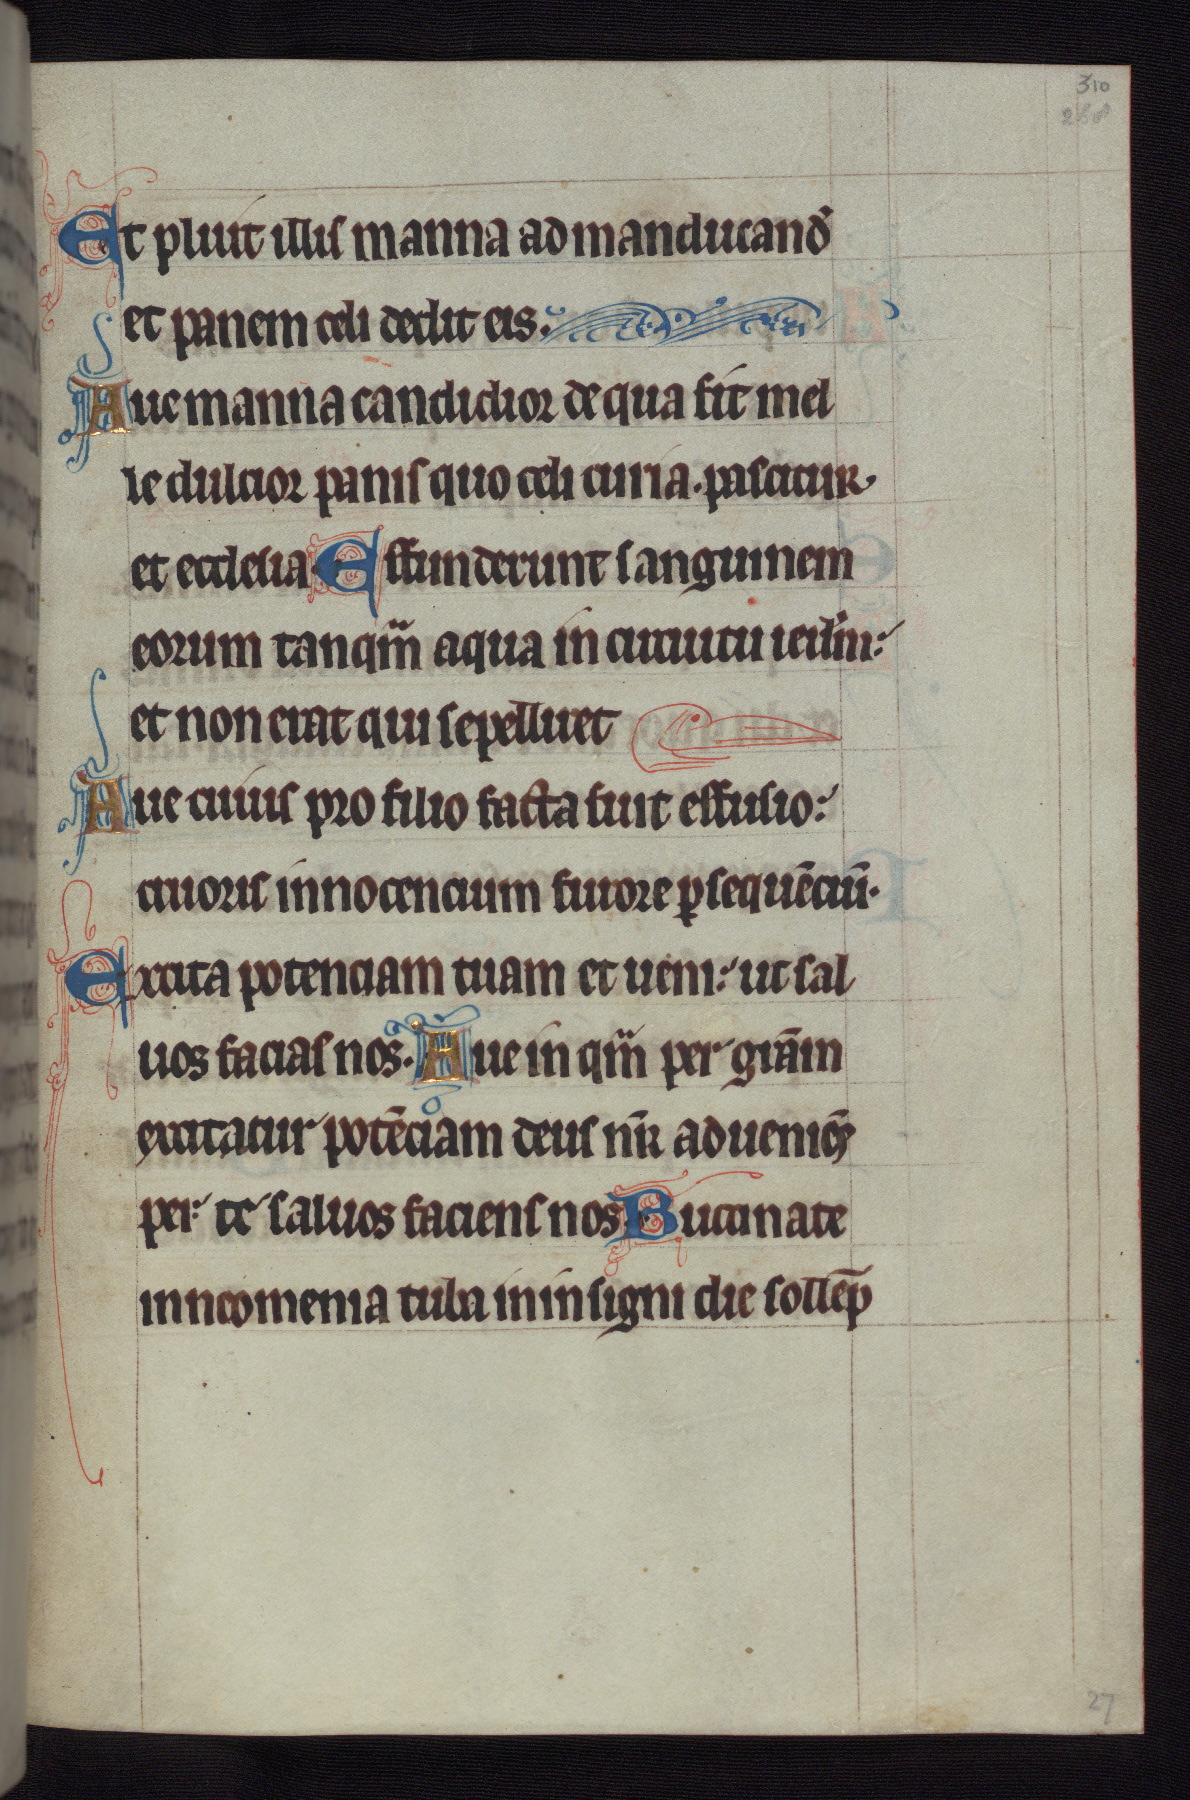 310
268
Et pluit illis manna ad manducand᷒
et panem celi dedit eis.
Aue manna candidior de qua fit mel
le dulcior panis quo celi curia. pascitur
et ecclesia. Effunderunt sanguinem
eorum tanqm̄ aqua in circuitu ierl̄m:
et non erat qui sepelluet
Aue cuius pro filio facta fuit effusio:
cruoris innocencium furore ꝑsequēciū.
Excita potenciam tuam et ueni: ut sal
uos facias nos. Aue in qm̄ per grām
excitatur potēciam deus nr̄ adueniēs
per te saluos faciens nos Buccinate
in neomenia tuba in insigni die sollēp
27